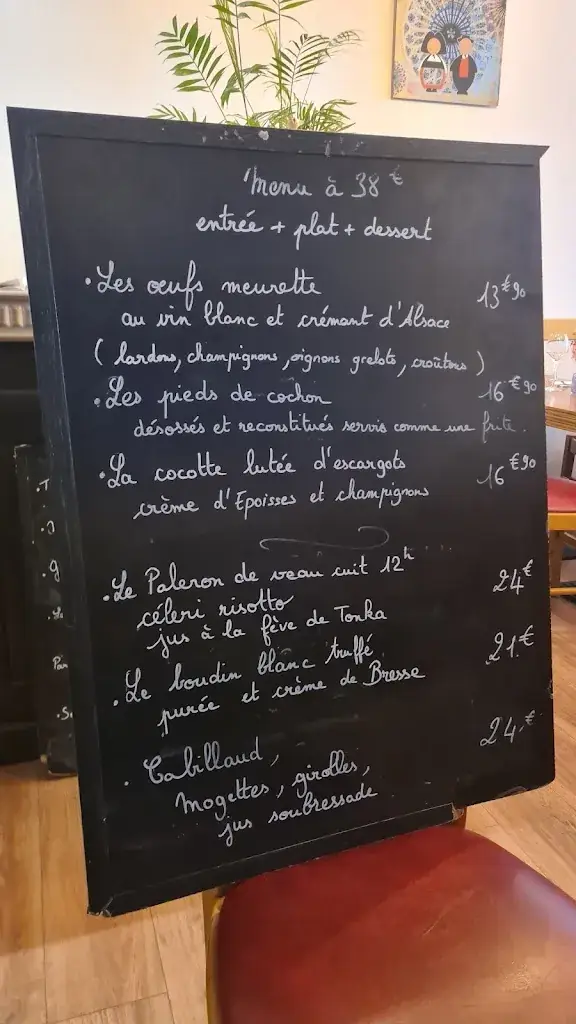 Menu à 38 €
entrée + plat + dessert
• Les œufs meurette 13€90
au vin blanc et crémant d'Alsace
( lardons, champignons, oignons grelots, croûtons )
• Les pieds de cochon 16€90
désossés et reconstitués servis comme une frite.
• La cocotte lutée d'escargots 16€90
crème d'Epoisses et champignons
• Le Paleron de veau cuit 12h 24€
céleri risotto
jus à la fève de Tonka
• Le boudin blanc truffé 21€
purée et crème de Bresse
• Cabillaud, 24€
Mogettes, girolles,
jus soubressade